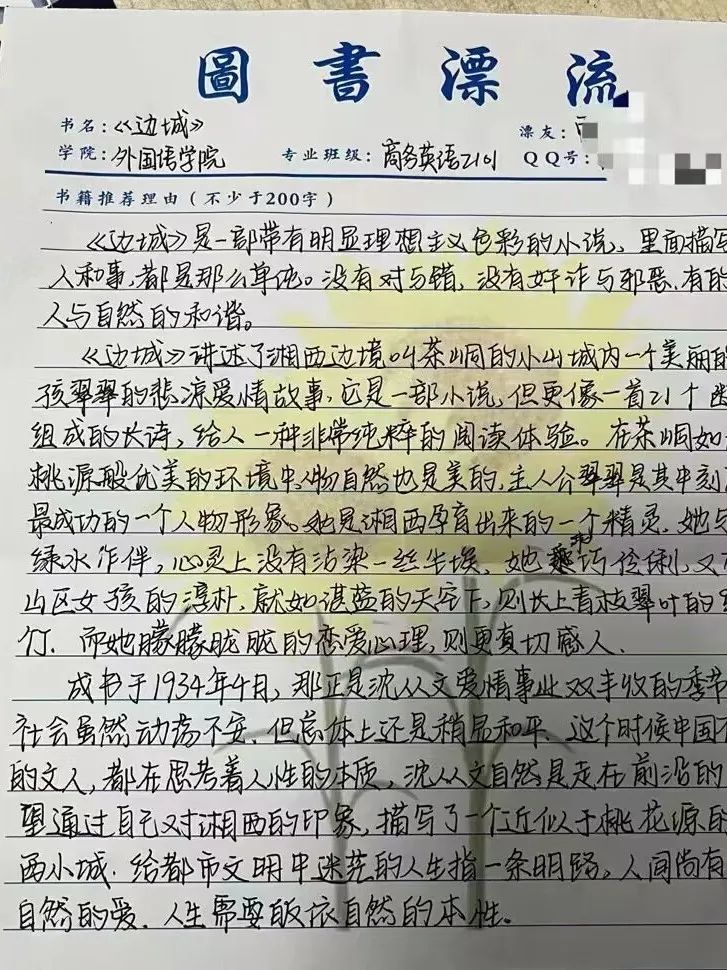 圖書漂流
书名:《边城》
漂友:
学院:外国语学院 专业班级:商务英语2101 QQ号:
书籍推荐理由(不少于200字)
《边城》是一部带有明显理想主义色彩的小说,里面描写
人和事,都是那么单纯。没有对与错,没有奸诈与邪恶,有的
人与自然的和谐。
《边城》讲述了湘西边境叫茶峒的小山城内一个美丽的
孩翠翠的悲凉爱情故事,它是一部小说,但更像一首21个
组成的长诗,给人一种非常纯粹的阅读体验。在茶峒如
桃源般优美的环境中,人物自然也是美的,主人公翠翠是其中刻
最成功的一个人物形象。她是湘西孕育出来的一个精灵,她与
绿水作伴,心灵上没有沾染一丝尘埃,她乖巧伶俐,又
山区女孩的淳朴,就如湛蓝的天空下,刚长上青枝翠叶的
仃.而她朦朦胧胧的恋爱心理,则更真切感人.
成书于1934年4月,那正是沈从文爱情事业双丰收的季节
社会虽然动荡不安,但总体上还是稍显和平,这个时候中国
的文人,都在思考着人性的本质,沈从文自然是走在前沿的
望通过自己对湘西的印象,描写了一个近似于桃花源的
西小城.给都市文明中迷茫的人生指一条明路。人间尚有
自然的爱.人生需要皈依自然的本性.